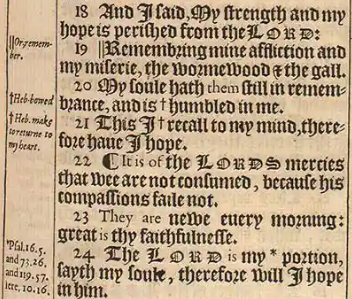 18 And I said, My strength and my
hope is perished from the LORD:
||Or, remem-
ber.
19 ||Remembring mine affliction and
my miserie, the wormewood & the gall.
20 My soule hath them still in remem-
†Heb. bowed
brance, and is † humbled in me.
†Heb. make
to returne to
my heart.
21 This I † recall to my mind, there-
fore haue I hope.
22 ¶ It is of the LORDS mercies
that wee are not consumed, because his
compassions faile not.
23 They are newe euery morning:
great is thy faithfulnesse.
*Psal. 16. 5.
and 73. 26.
and 119. 57.
iere. 10. 16.
24 The LORD is my * portion,
sayth my soule, therefore will I hope
in him.